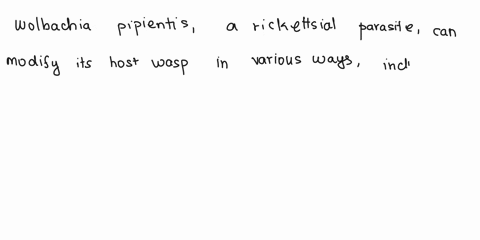 Wolbachia pipientis, a rickettsial parasite, can
modify its host wasp in various ways, incl